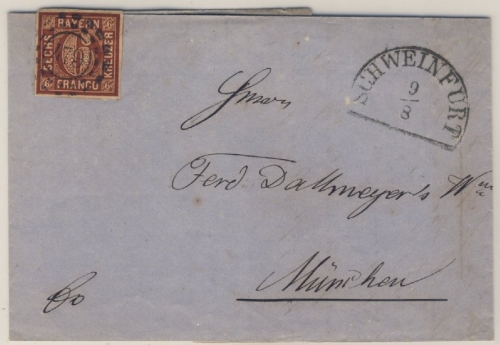 BAYERN
SECHS
KREUZER
FRANCO
6
SCHWEINFURT
9
8
Herrn
Ferd. Dallmeyer's Wwe
München